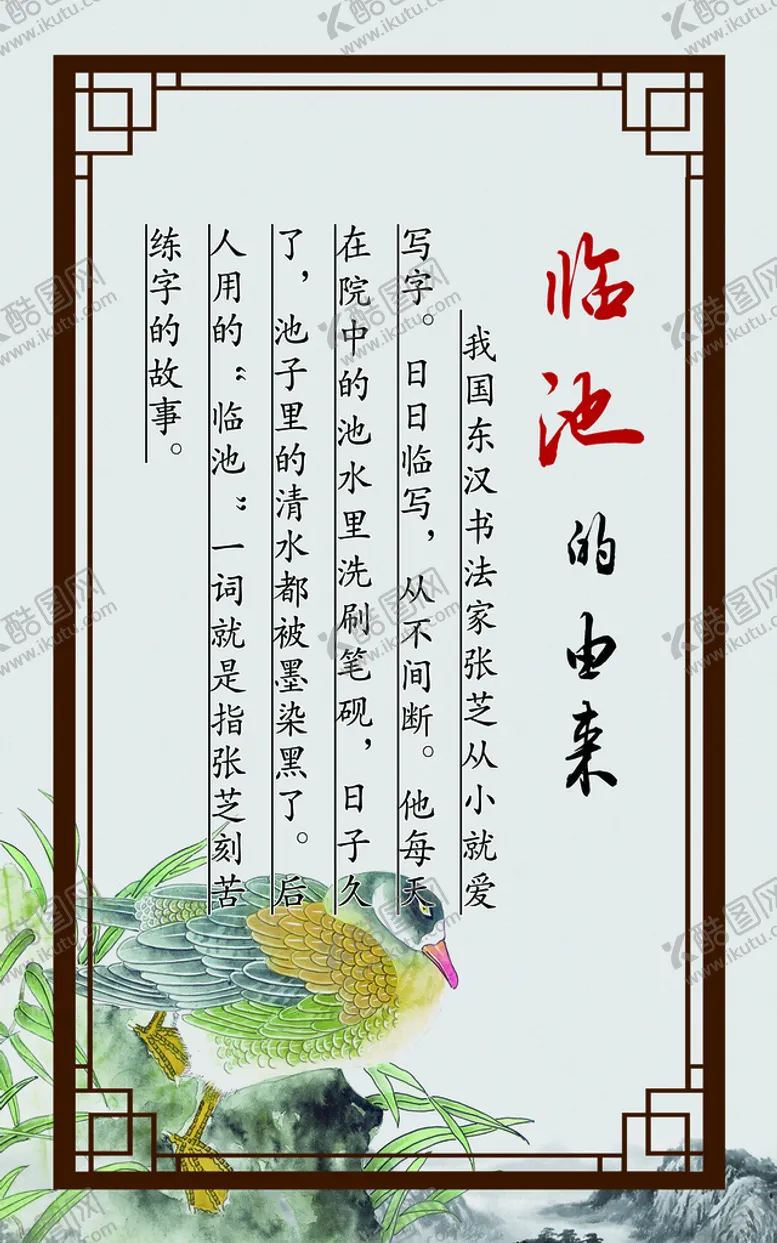 临池的由来
我国东汉书法家张芝从小就爱
写字。日日临写，从不间断。他每天
在院中的池水里洗刷笔砚，日子久
了，池子里的清水都被墨染黑了。后
人用的“临池”一词就是指张芝刻苦
练字的故事。
酷图网
www.ikutu.com